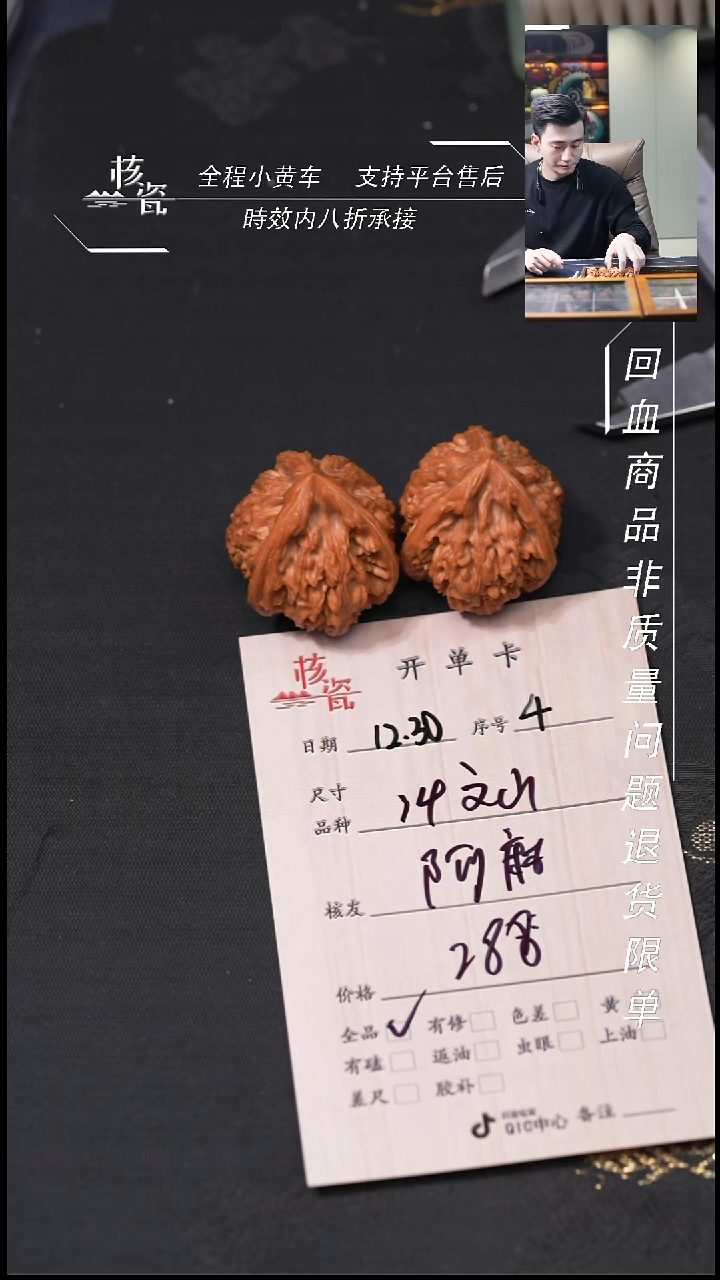 核瓷
全程小黄车 支持平台售后
時效内八折承接
回血商品非质量问题退货限单
核瓷
开单卡
日期 12.30 序号 4
尺寸
品种
文山
核发 阿
价格 288
全品 ✓ 有修 色差 黄
有磕 返油 虫眼 上油
差尺 胶补
QIC中心 备注